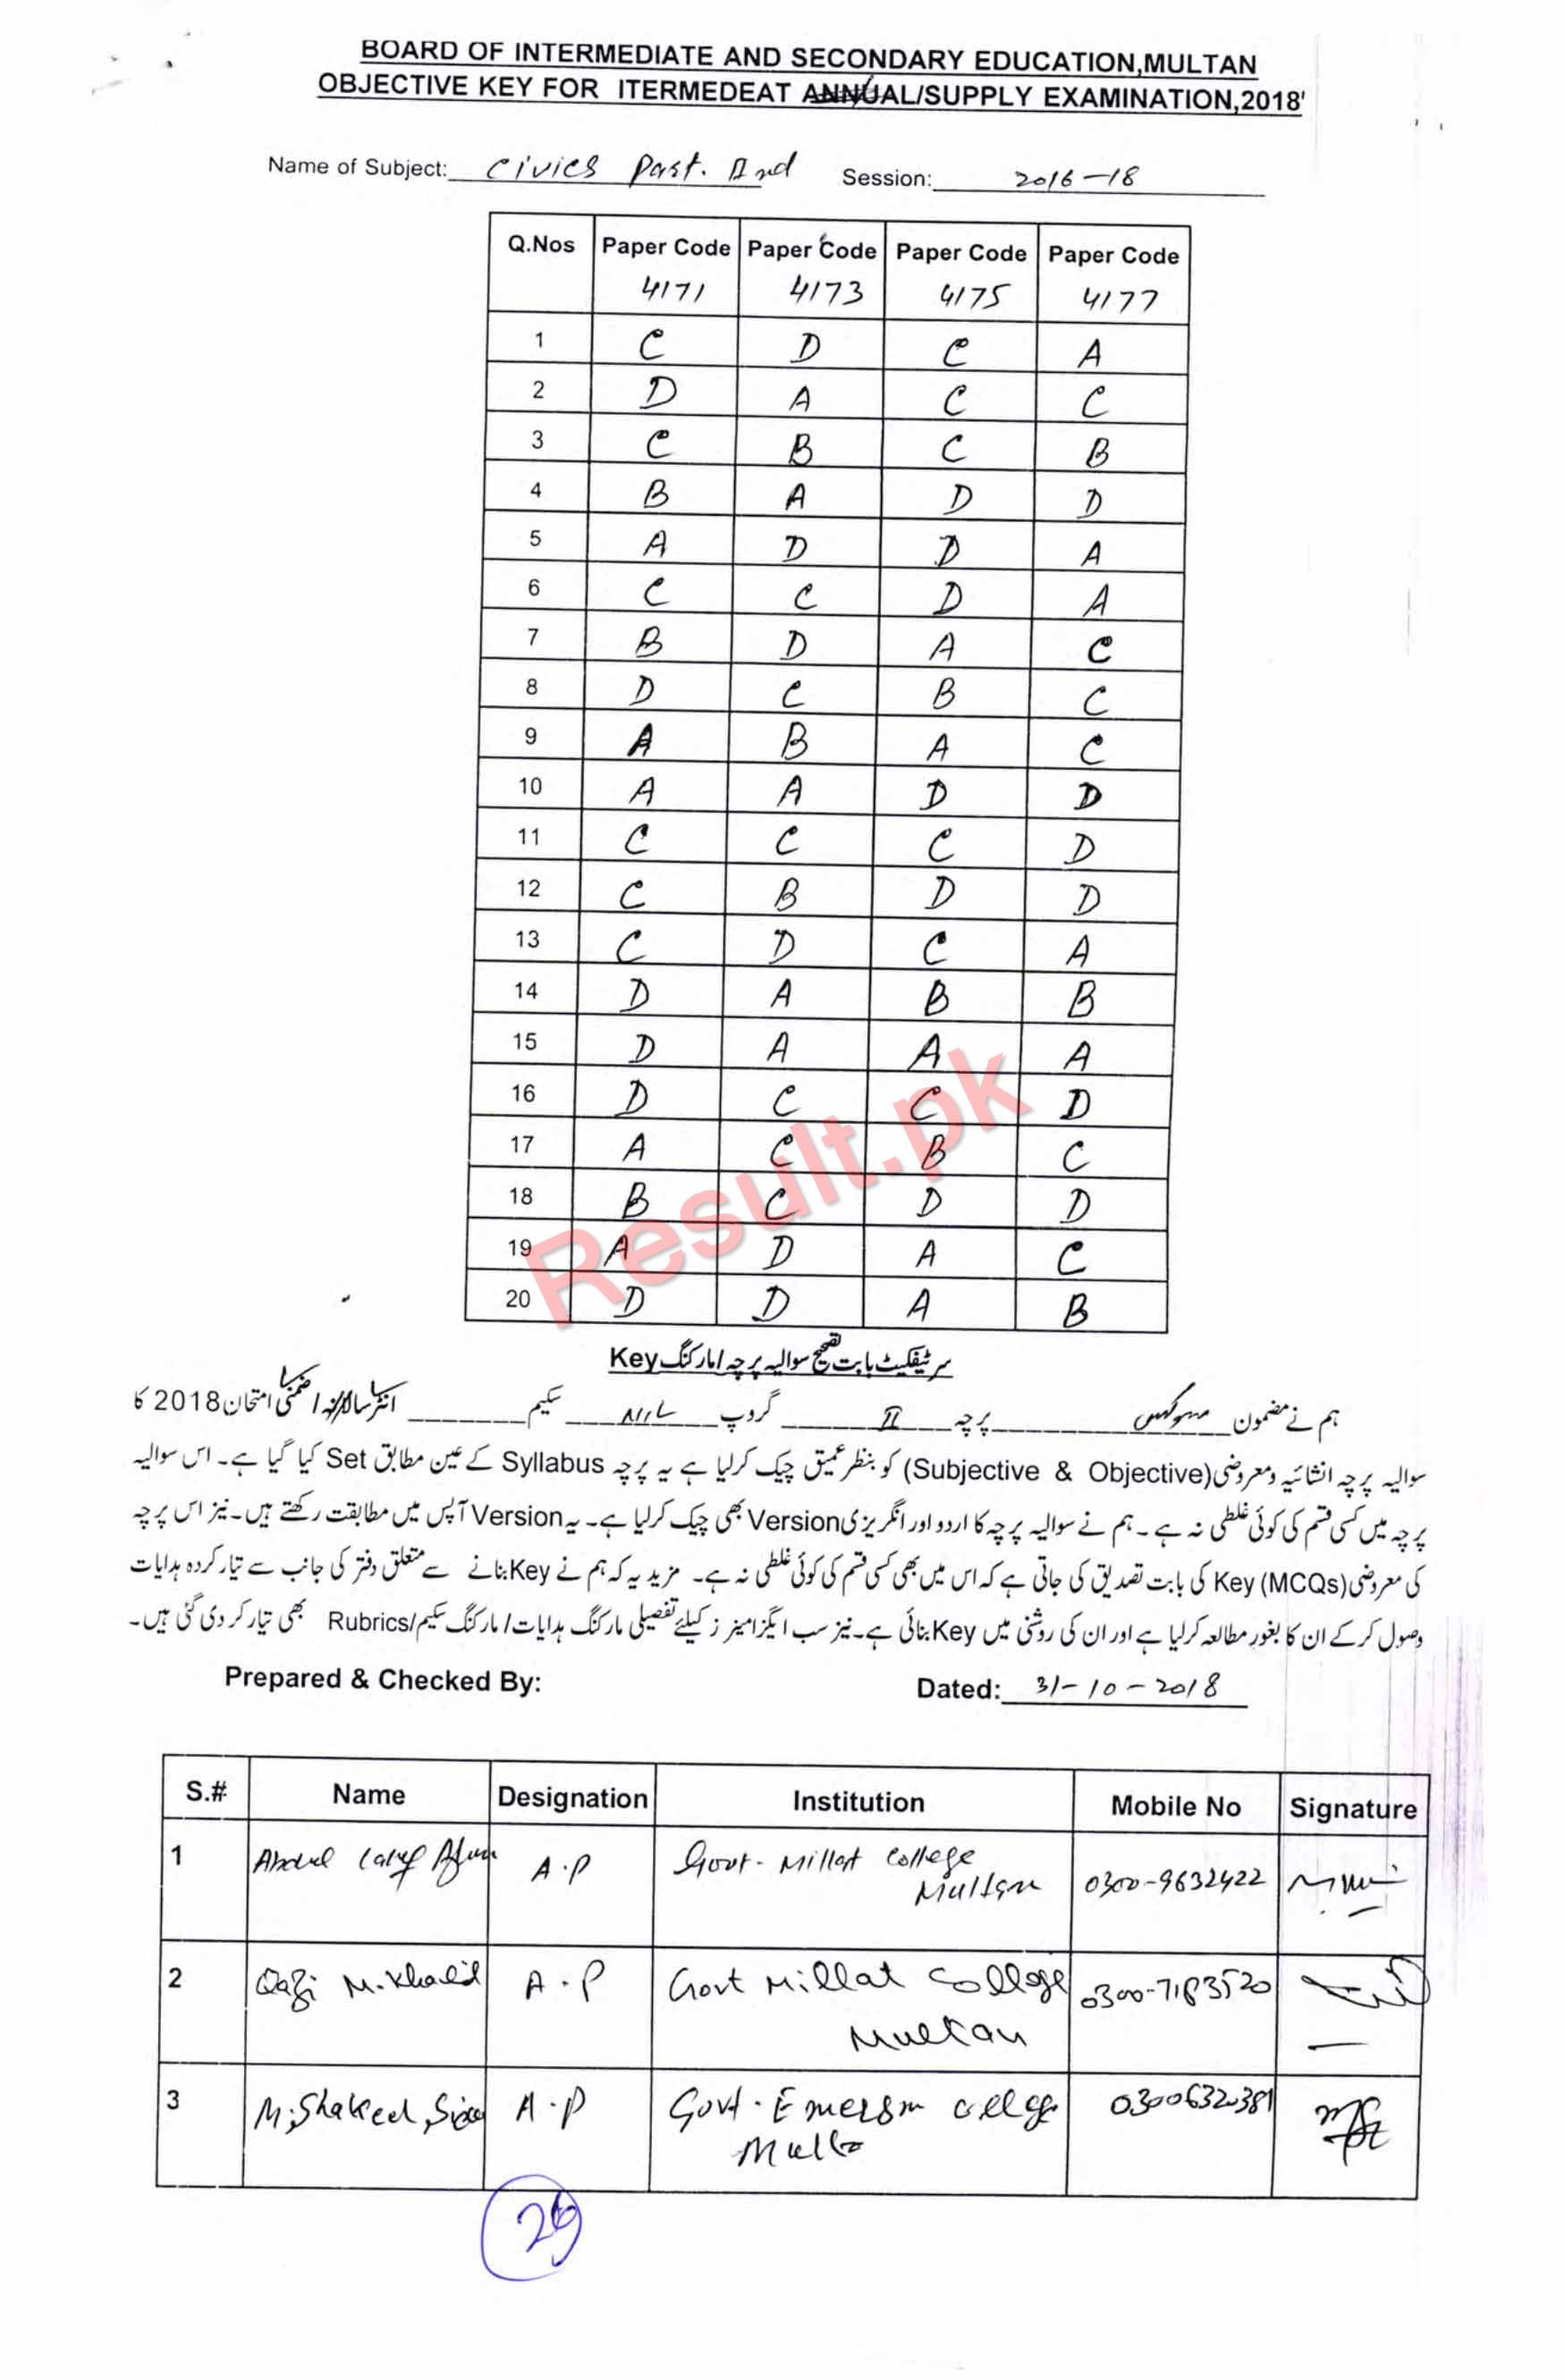 BOARD OF INTERMEDIATE AND SECONDARY EDUCATION,MULTAN
OBJECTIVE KEY FOR ITERMEDEAT ANNUAL/SUPPLY EXAMINATION,2018'
Name of Subject: Civics Part. IInd Session: 2016-18
Q.Nos Paper Code Paper Code Paper Code Paper Code
4171 4173 4175 4177
1 C D C A
2 D A C C
3 C B C B
4 B A D D
5 A D D A
6 C C D A
7 B D A C
8 D C B C
9 A B A C
10 A A D D
11 C C C D
12 C B D D
13 C D C A
14 D A B B
15 D A A A
16 D C C D
17 A C B C
18 B C D D
19 A D A C
20 D D A B
Result.pk
سرٹیفکیٹ بابت تصحیح سوالیہ پرچہ/مارکنگ Key
ہم نے مضمون سوکس پرچہ II گروپ NIL سکیم انٹر سالانہ/ضمنی امتحان 2018 کا
سوالیہ پرچہ انشائیہ ومعروضی(Subjective & Objective) کو بنظر عمیق چیک کرلیا ہے یہ پرچہ Syllabus کے عین مطابق Set کیا گیا ہے۔ اس سوالیہ
پرچہ میں کسی قسم کی کوئی غلطی نہ ہے۔ ہم نے سوالیہ پرچہ کا اردو اور انگریزی Version بھی چیک کرلیا ہے۔ یہ Version آپس میں مطابقت رکھتے ہیں۔ نیز اس پرچہ
کی معروضی (MCQs) Key کی بابت تصدیق کی جاتی ہے کہ اس میں بھی کسی قسم کی کوئی غلطی نہ ہے۔ مزید یہ کہ ہم نے Key بنانے سے متعلق دفتر کی جانب سے تیار کردہ ہدایات
وصول کرکے ان کا بغور مطالعہ کرلیا ہے اور ان کی روشنی میں Key بنائی ہے۔ نیز سب ایگزامینرز کیلئے تفصیلی مارکنگ ہدایات/مارکنگ سکیم/Rubrics بھی تیار کردی گئی ہیں۔
Prepared & Checked By: Dated: 31-10-2018
S.# Name Designation Institution Mobile No Signature
1 Abdul A.P Govt. Millat College
Multan 0300-9632422
2 Qazi M.Khalid A.P Govt Millat College 0300-7183520
Multan
3 M.Shakeel A.P Govt. Emerson College 03006320381
26